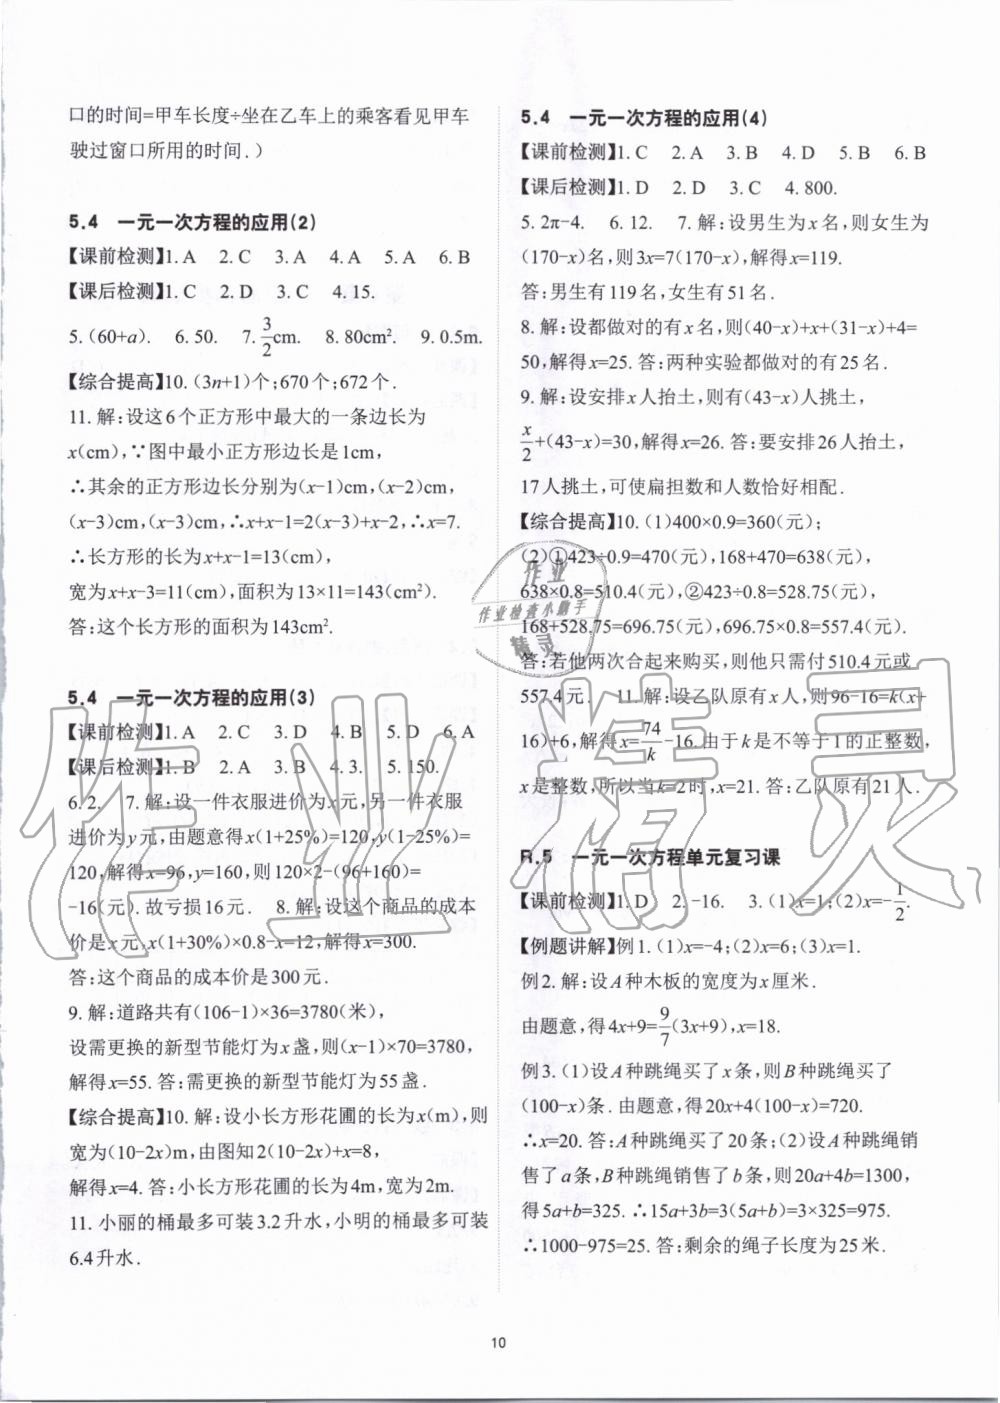 口的时间=甲车长度÷坐在乙车上的乘客看见甲车
驶过窗口所用的时间.)
5.4 一元一次方程的应用(2)
【课前检测】1. A 2. C 3. A 4. A 5. A 6. B
【课后检测】1. C 2. D 3. C 4. 15.
5. (60+a). 6. 50. 7. 3/2cm. 8. 80cm² 9. 0.5m.
【综合提高】10. (3n+1)个;670个;672个.
11. 解:设这6个正方形中最大的一条边长为
x(cm),∵图中最小正方形边长是1cm,
∴其余的正方形边长分别为(x-1)cm,(x-2)cm,
(x-3)cm,(x-3)cm,∴x+x-1=2(x-3)+x-2,∴x=7.
∴长方形的长为x+x-1=13(cm),
宽为x+x-3=11(cm),面积为13×11=143(cm²).
答:这个长方形的面积为143cm².
5.4 一元一次方程的应用(3)
【课前检测】1. A 2. C 3. D 4. B 5. D 6. A
【课后检测】1. B 2. A 3. B 4. 3. 5. 150.
6. 2. 7. 解:设一件衣服进价为x元,另一件衣服
进价为y元,由题意得x(1+25%)=120,y(1-25%)=
120,解得x=96,y=160,所以120×2-(96+160)=
-16(元). 故亏损16元. 8. 解:设这个商品的成本
价是x元,x(1+30%)×0.8-x=12,解得x=300.
答:这个商品的成本价是300元.
9. 解:道路共有(106-1)×36=3780(米),
设需更换的新型节能灯为x盏,则(x-1)×70=3780,
解得x=55. 答:需更换的新型节能灯为55盏.
【综合提高】10. 解:设小长方形花圃的长为x(m),则
宽为(10-2x)m,由图知2(10-2x)+x=8,
解得x=4. 答:小长方形花圃的长为4m,宽为2m.
11. 小丽的桶最多可装3.2升水,小明的桶最多可装
6.4升水.
5.4 一元一次方程的应用(4)
【课前检测】1. C 2. A 3. B 4. D 5. B 6. B
【课后检测】1. D 2. D 3. C 4. 800.
5. 2π-4. 6. 12. 7. 解:设男生为x名,则女生为
(170-x)名,则3x=7(170-x),解得x=119.
答:男生有119名,女生有51名.
8. 解:设都做对的有x名,则(40-x)+x+(31-x)+4=
50,解得x=25. 答:两种实验都做对的有25名.
9. 解:设安排x人抬土,则有(43-x)人挑土,
x/2+(43-x)=30,解得x=26. 答:要安排26人抬土,
17人挑土,可使扁担数和人数恰好相配.
【综合提高】10. (1)400×0.9=360(元);
(2)①423÷0.9=470(元),168+470=638(元),
638×0.8=510.4(元),②423÷0.8=528.75(元),
168+528.75=696.75(元),696.75×0.8=557.4(元).
答:若他两次合起来购买,则他只需付510.4元或
557.4元. 11. 解:设乙队原有x人,则96-16=k(x+
16)+6,解得x=74/k-16. 由于k是不等于1的正整数,
x是整数,所以当k=2时,x=21. 答:乙队原有21人.
R.5 一元一次方程单元复习课
【课前检测】1. D 2. -16. 3. (1)x=1;(2)x=-1/2.
【例题讲解】例1. (1)x=-4;(2)x=6;(3)x=1.
例2. 解:设A种木板的宽度为x厘米.
由题意,得4x+9=9/7(3x+9),x=18.
例3. (1)设A种跳绳买了x条,则B种跳绳买了
(100-x)条. 由题意,得20x+4(100-x)=720.
∴x=20. 答:A种跳绳买了20条;(2)设A种跳绳销
售了a条,B种跳绳销售了b条,则20a+4b=1300,
得5a+b=325. ∴15a+3b=3(5a+b)=3×325=975.
∴1000-975=25. 答:剩余的绳子长度为25米.
作业
作业检查小助手
精灵
作业精灵
10